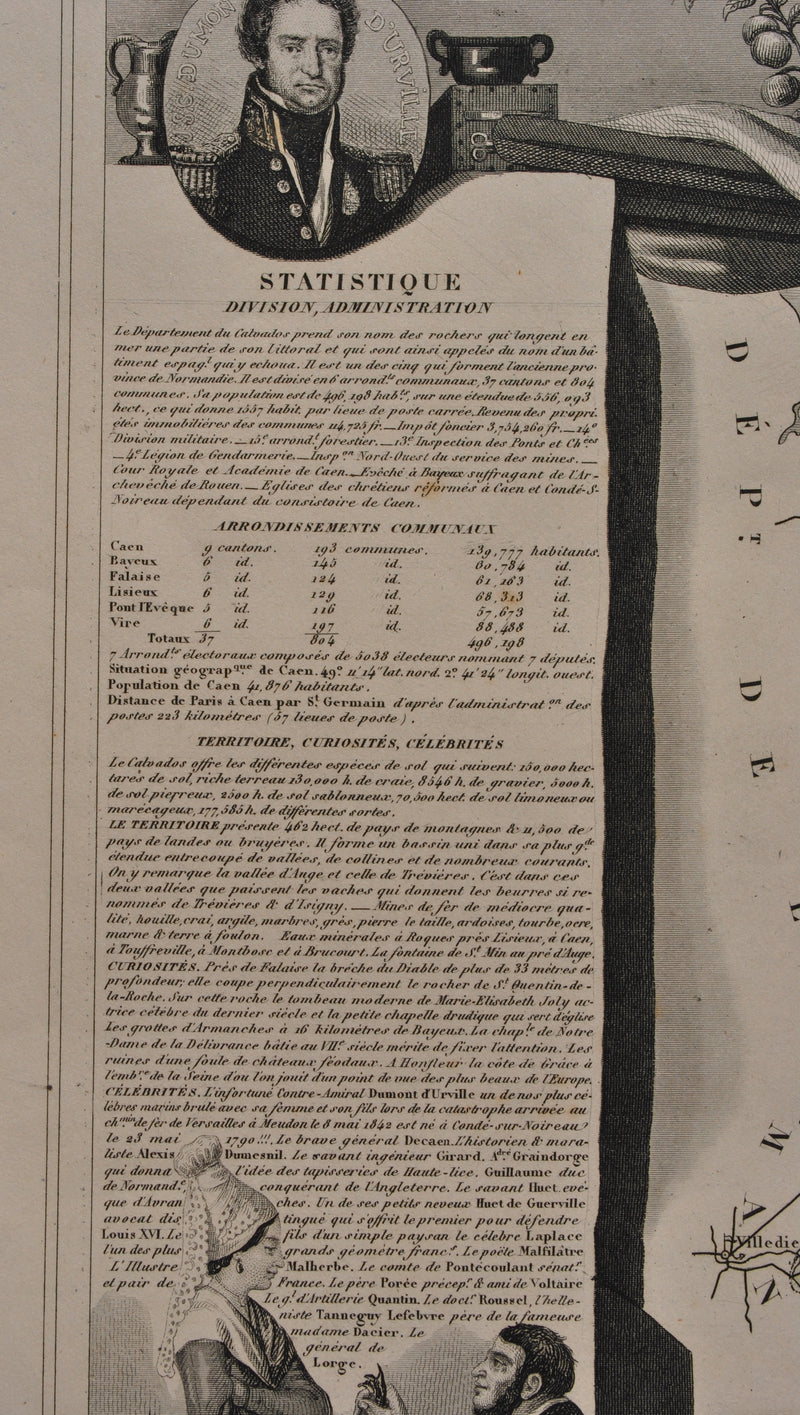 DUMONT D'URVILLE
STATISTIQUE
DIVISION, ADMINISTRATION
Le Département du Calvados prend son nom des rochers qui longent en
mer une partie de son littoral et qui sont ainsi appelés du nom d'un bâ-
timent espagl. qui y echoua. Il est un des cinq qui forment l'ancienne pro-
vince de Normandie. Il est divisé en 6 arrondts. communaux, 37 cantons et 804
communes. Sa population est de 496,198 habts., sur une étendue de 556,093
hect., ce qui donne 1557 habit. par lieue de poste carrée. Revenu des propri-
étés immobilières des communes 114,725 fr.—Impôt foncier 3,754,260 fr.—14e
Division militaire.—15e arrondt. forestier.—13e Inspection des Ponts et Chées
—4e Légion de Gendarmerie.—Inspon Nord-Ouest du service des mines.—
Cour Royale et Académie de Caen.—Evêché à Bayeux suffragant de l'Ar-
chevêché de Rouen.—Eglises des chrétiens réformés à Caen et Condé-S-
Noireau dépendant du consistoire de Caen.
ARRONDISSEMENTS COMMUNAUX
Caen 9 cantons. 193 communes. 139,777 habitants.
Bayeux 6 id. 145 id. 80,784 id.
Falaise 5 id. 124 id. 61,163 id.
Lisieux 6 id. 129 id. 68,313 id.
Pont l'Evêque 5 id. 116 id. 57,673 id.
Vire 6 id. 197 id. 88,488 id.
Totaux 37 804 496,198
7 Arrondts. électoraux composés de 5038 électeurs nommant 7 députés.
Situation géographque de Caen. 49° 11' 14" lat. nord. 2° 41' 24" longit. ouest.
Population de Caen 41,876 habitants.
Distance de Paris à Caen par St. Germain d'après l'administraton des
postes 223 kilomètres (57 lieues de poste).
TERRITOIRE, CURIOSITÉS, CÉLÉBRITÉS
Le Calvados offre les différentes espéces de sol qui suivent: 150,000 hec-
tares de sol, riche terreau 130,000 h. de craie, 8546 h. de gravier, 5000 h.
de sol pierreux, 2500 h. de sol sablonneux, 70,500 hect. de sol limoneux ou
marécageux, 177,585 h. de différentes sortes.
LE TERRITOIRE présente 462 hect. de pays de montagnes & 11,500 de
pays de landes ou bruyères. Il forme un bassin uni dans sa plus gde
étendue entrecoupé de vallées, de collines et de nombreux courants.
On y remarque la vallée d'Auge et celle de Trévières. C'est dans ces
deux vallées que paissent les vaches qui donnent les beurres si re-
nommés de Trévières & d'Isigny.—Mines de fer de médiocre qua-
lité, houille, crai, argile, marbres, grès, pierre le taille, ardoises, tourbe, ocre,
marne & terre à foulon. Eaux minérales à Roques près Lisieux, à Caen,
à Touffreville, à Montbosc et à Brucourt. La fontaine de St. Min au pré d'Auge.
CURIOSITÉS. Près de Falaise la brèche du Diable de plus de 33 mètres de
profondeur; elle coupe perpendiculairement le rocher de St. Quentin-de-
la-Roche. Sur cette roche le tombeau moderne de Marie-Elisabeth Joly ac-
trice célèbre du dernier siècle et la petite chapelle drudique qui sert d'église
Les grottes d'Armanches à 16 kilomètres de Bayeux. La chaple de Notre
-Dame de la Délivrance bâtie au VIIe siècle mérite de fixer l'attention. Les
ruines d'une foule de châteaux féodaux. A Honfleur la côte de Grâce à
l'embre. de la Seine d'ou l'on jouit d'un point de vue des plus beaux de l'Europe.
CÉLÉBRITÉS. L'infortuné Contre-Amiral Dumont d'Urville un de nos plus cé-
lèbres marins brulé avec sa femme et son fils lors de la catastrophe arrivée au
chmin de fer de Versailles à Meudon le 8 mai 1842 est né à Condé-sur-Noireau
le 23 mai 1790!!!. Le brave général Decaen. L'historien & mora-
liste Alexis Dumesnil. Le savant ingénieur Girard. Adré Graindorge
qui donna l'idée des tapisseries de Haute-lice. Guillaume duc
de Normand. conquérant de l'Angleterre. Le savant Huet. evê-
que d'Avran ches. Un de ses petits neveux Huet de Guerville
avocat dis tingué qui s'offrit le premier pour défendre
Louis XVI. Le fils d'un simple paysan le célèbre Laplace
l'un des plus grands géomètre franc. Le poète Malfilâtre
L'Illustre Malherbe. Le comte de Pontécoulant sénatr.
et pair de France. Le père Porée précepr. & ami de Voltaire
Le gl. d'Artillerie Quantin. Le doctr. Roussel, l'helle-
niste Tanneguy Lefebvre père de la fameuse
madame Dacier. Le
général de
Lorge.
DÉPT. DE
MAN
Villedie